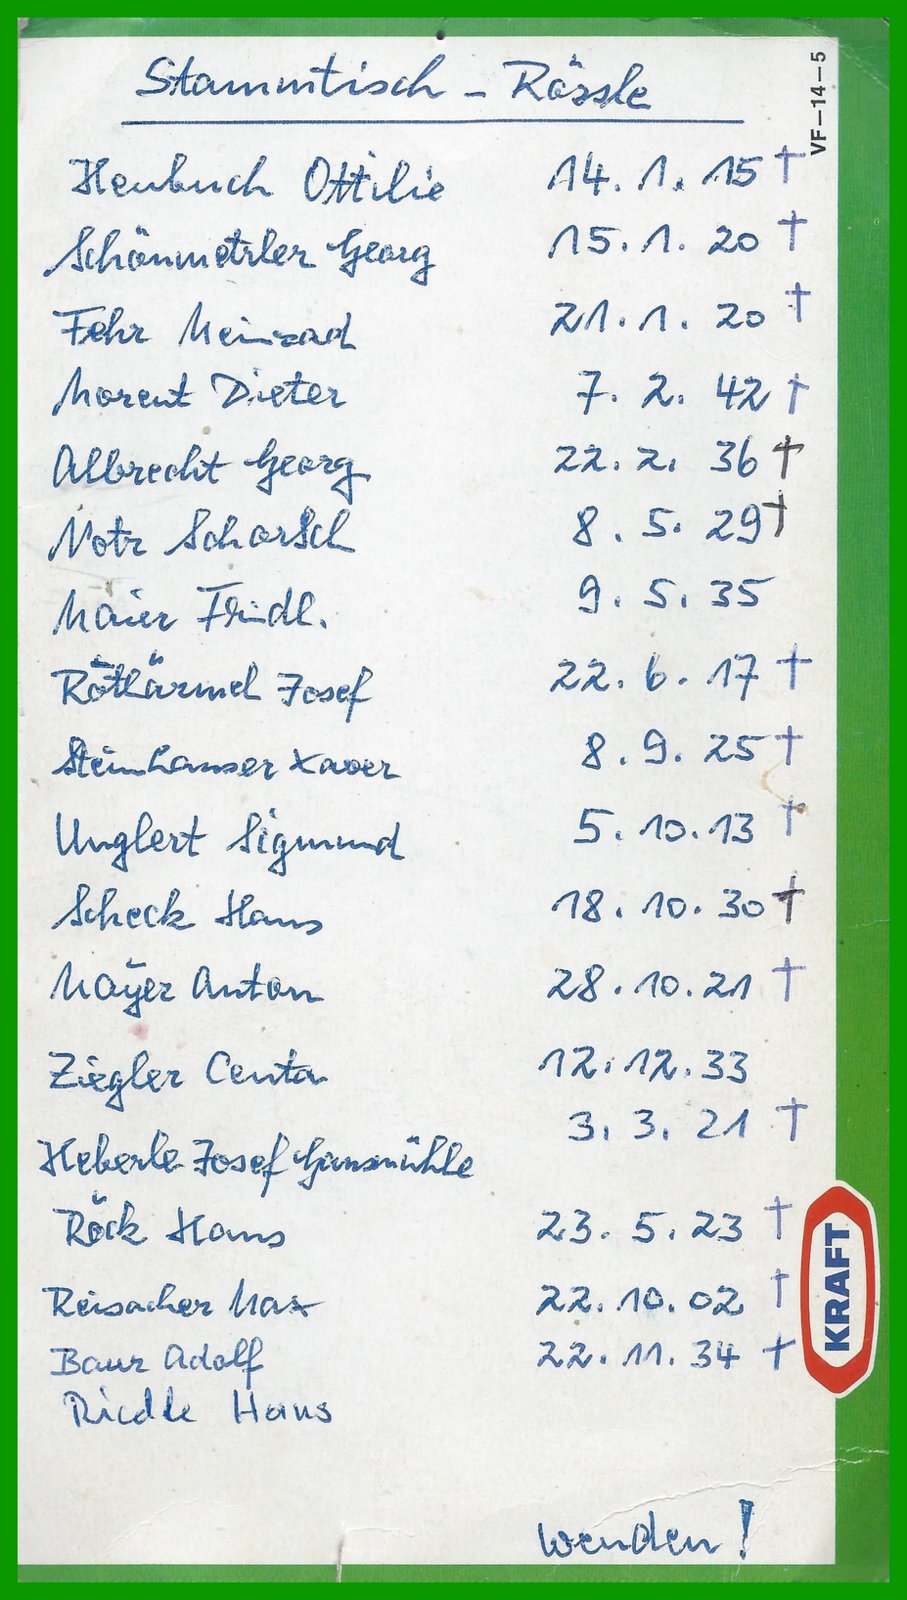 Stammtisch - Rössle
VF-14-5
Heubuch Ottilie 14. 1. 15 †
Schönmetzler Georg 15. 1. 20 †
Fehr Meinrad 21. 1. 20 †
Morent Dieter 7. 2. 42 †
Albrecht Georg 22. 2. 36 †
Motz Schorsch 8. 5. 29 †
Maier Friedl. 9. 5. 35
Röthärmel Josef 22. 6. 17 †
Steinhauser Xaver 8. 9. 25 †
Unglert Sigmund 5. 10. 13 †
Scheck Hans 18. 10. 30 †
Mayer Anton 28. 10. 21 †
Ziegler Centa 12. 12. 33
Heberle Josef Gansmühle 3. 3. 21 †
Röck Hans 23. 5. 23 †
Reisacher Max 22. 10. 02 †
Baur Adolf 22. 11. 34 †
Riedle Hans
KRAFT
wenden!